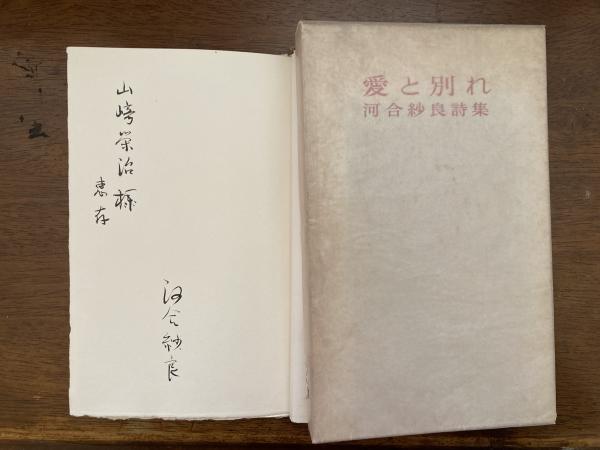 山崎栄治様
恵存
河合紗良
愛と別れ
河合紗良詩集